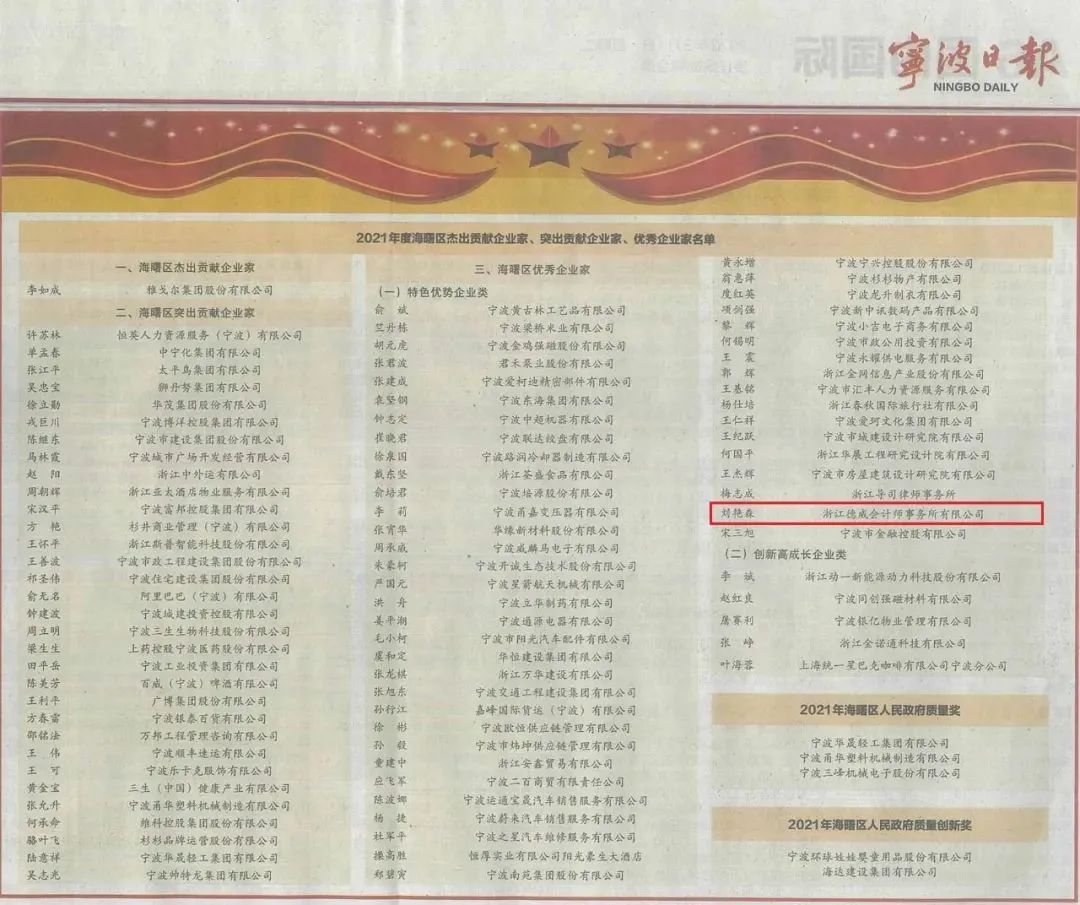 寧波日報
NINGBO DAILY
2021年度海曙区杰出贡献企业家、突出贡献企业家、优秀企业家名单
一、海曙区杰出贡献企业家
李如成 雅戈尔集团股份有限公司
二、海曙区突出贡献企业家
许苏林 恒英人力资源服务（宁波）有限公司
单孟春 中宁化集团有限公司
张江平 太平鸟集团有限公司
吴忠宝 狮丹努集团有限公司
徐立勋 华茂集团股份有限公司
戎巨川 宁波博洋控股集团有限公司
陈继东 宁波市建设集团股份有限公司
马林霞 宁波城市广场开发经营有限公司
赵阳 浙江中外运有限公司
周朝辉 浙江亚太酒店物业服务有限公司
宋汉平 宁波富邦控股集团有限公司
方艳 杉井商业管理（宁波）有限公司
王怀平 浙江斯普智能科技股份有限公司
王善波 宁波市政工程建设集团股份有限公司
祁圣伟 宁波住宅建设集团股份有限公司
俞无名 阿里巴巴（宁波）有限公司
钟建波 宁波城建投资控股有限公司
周立明 宁波三生生物科技股份有限公司
梁生生 上药控股宁波医药股份有限公司
田平岳 宁波工业投资集团有限公司
陈美芳 百威（宁波）啤酒有限公司
王利平 广博集团股份有限公司
方春雷 宁波银泰百货有限公司
邵铭法 万邦工程管理咨询有限公司
王伟 宁波顺丰速运有限公司
王可 宁波乐卡克服饰有限公司
黄金宝 三生（中国）健康产业有限公司
张允升 宁波甬华塑料机械制造有限公司
何承命 维科控股集团股份有限公司
骆叶飞 杉杉品牌运营股份有限公司
陆意祥 宁波华晟轻工集团有限公司
吴志光 宁波帅特龙集团有限公司
三、海曙区优秀企业家
（一）特色优势企业类
俞斌 宁波黄古林工艺品有限公司
竺丹栋 宁波梁桥米业有限公司
胡元虎 宁波金鸡强磁股份有限公司
张君波 君禾泵业股份有限公司
张建成 宁波爱柯迪精密部件有限公司
袁坚钢 宁波东海集团有限公司
钟志定 宁波中超机器有限公司
崔晓君 宁波联达绞盘有限公司
徐泉国 宁波路润冷却器制造有限公司
戴东坚 浙江荃盛食品有限公司
俞培君 宁波培源股份有限公司
李莉 宁波甬嘉变压器有限公司
张宵华 华缘新材料股份有限公司
周承威 宁波威麟马电子有限公司
朱豪柯 宁波开诚生态技术股份有限公司
严国元 宁波星箭航天机械有限公司
洪舟 宁波立华制药有限公司
姜平潮 宁波通源电器有限公司
毛小柯 宁波市阳光汽车配件有限公司
虞和定 华恒建设集团有限公司
张龙棋 浙江万华建设有限公司
张旭东 宁波交通工程建设集团有限公司
孙行江 嘉峰国际货运（宁波）有限公司
徐彬 宁波欧恒供应链管理有限公司
孙毅 宁波市炜坤供应链管理有限公司
童建中 浙江安鑫贸易有限公司
应飞军 宁波二百商贸有限责任公司
陈波娜 宁波运通宝晟汽车销售服务有限公司
杨捷 宁波蔚来汽车销售服务有限公司
杜军平 宁波之星汽车维修服务有限公司
操高胜 恒厚实业有限公司阳光豪生大酒店
郑碧寅 宁波南苑集团股份有限公司
黄永增 宁波宁兴控股股份有限公司
翁惠萍 宁波杉杉物产有限公司
度红英 宁波龙升制衣有限公司
项剑强 宁波新中讯数码产品有限公司
黎辉 宁波小吉电子商务有限公司
何锡明 宁波市政公用投资有限公司
王震 宁波永耀供电服务有限公司
郭辉 浙江金网信息产业股份有限公司
王基铭 宁波市汇丰人力资源服务有限公司
杨仕培 浙江春秋国际旅行社有限公司
王仁祥 宁波爱珂文化集团有限公司
王纪跃 宁波市城建设计研究院有限公司
何国平 浙江华展工程研究设计院有限公司
王杰辉 宁波市房屋建筑设计研究院有限公司
梅志成 浙江导司律师事务所
刘艳森 浙江德威会计师事务所有限公司
宋三旭 宁波市金融控股有限公司
（二）创新高成长企业类
李斌 浙江动一新能源动力科技股份有限公司
赵红良 宁波同创强磁材料有限公司
屠赛利 宁波银亿物业管理有限公司
张峥 浙江金诺通科技有限公司
叶海蓉 上海统一星巴克咖啡有限公司宁波分公司
2021年海曙区人民政府质量奖
宁波华晟轻工集团有限公司
宁波甬华塑料机械制造有限公司
宁波三峰机械电子股份有限公司
2021年海曙区人民政府质量创新奖
宁波环球娃娃婴童用品股份有限公司
海达建设集团有限公司